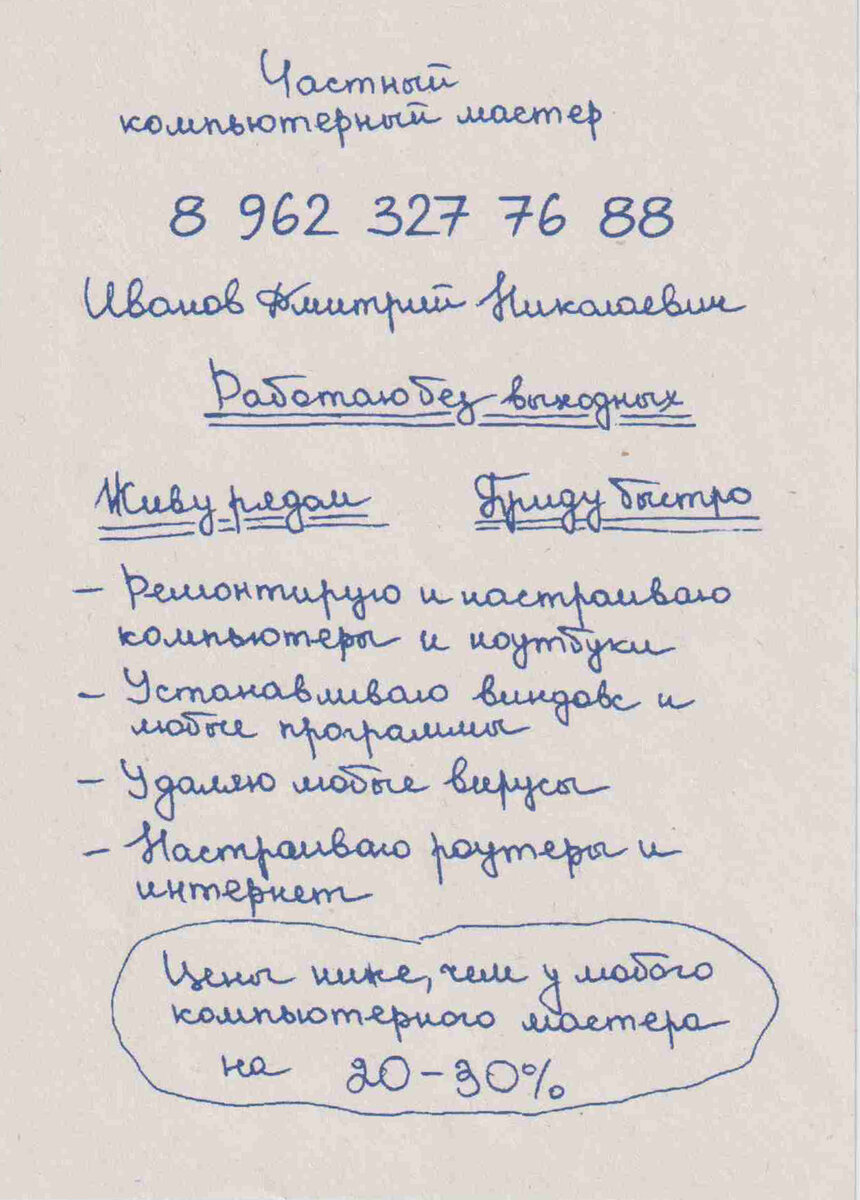 Частный
компьютерный мастер
8 962 327 76 88
Иванов Дмитрий Николаевич
Работаю без выходных
Живу рядом Приду быстро
- Ремонтирую и настраиваю
компьютеры и ноутбуки
- Устанавливаю виндовс и
любые программы
- Удаляю любые вирусы
- Настраиваю роутеры и
интернет
Цены ниже, чем у любого
компьютерного мастера
на 20-30%